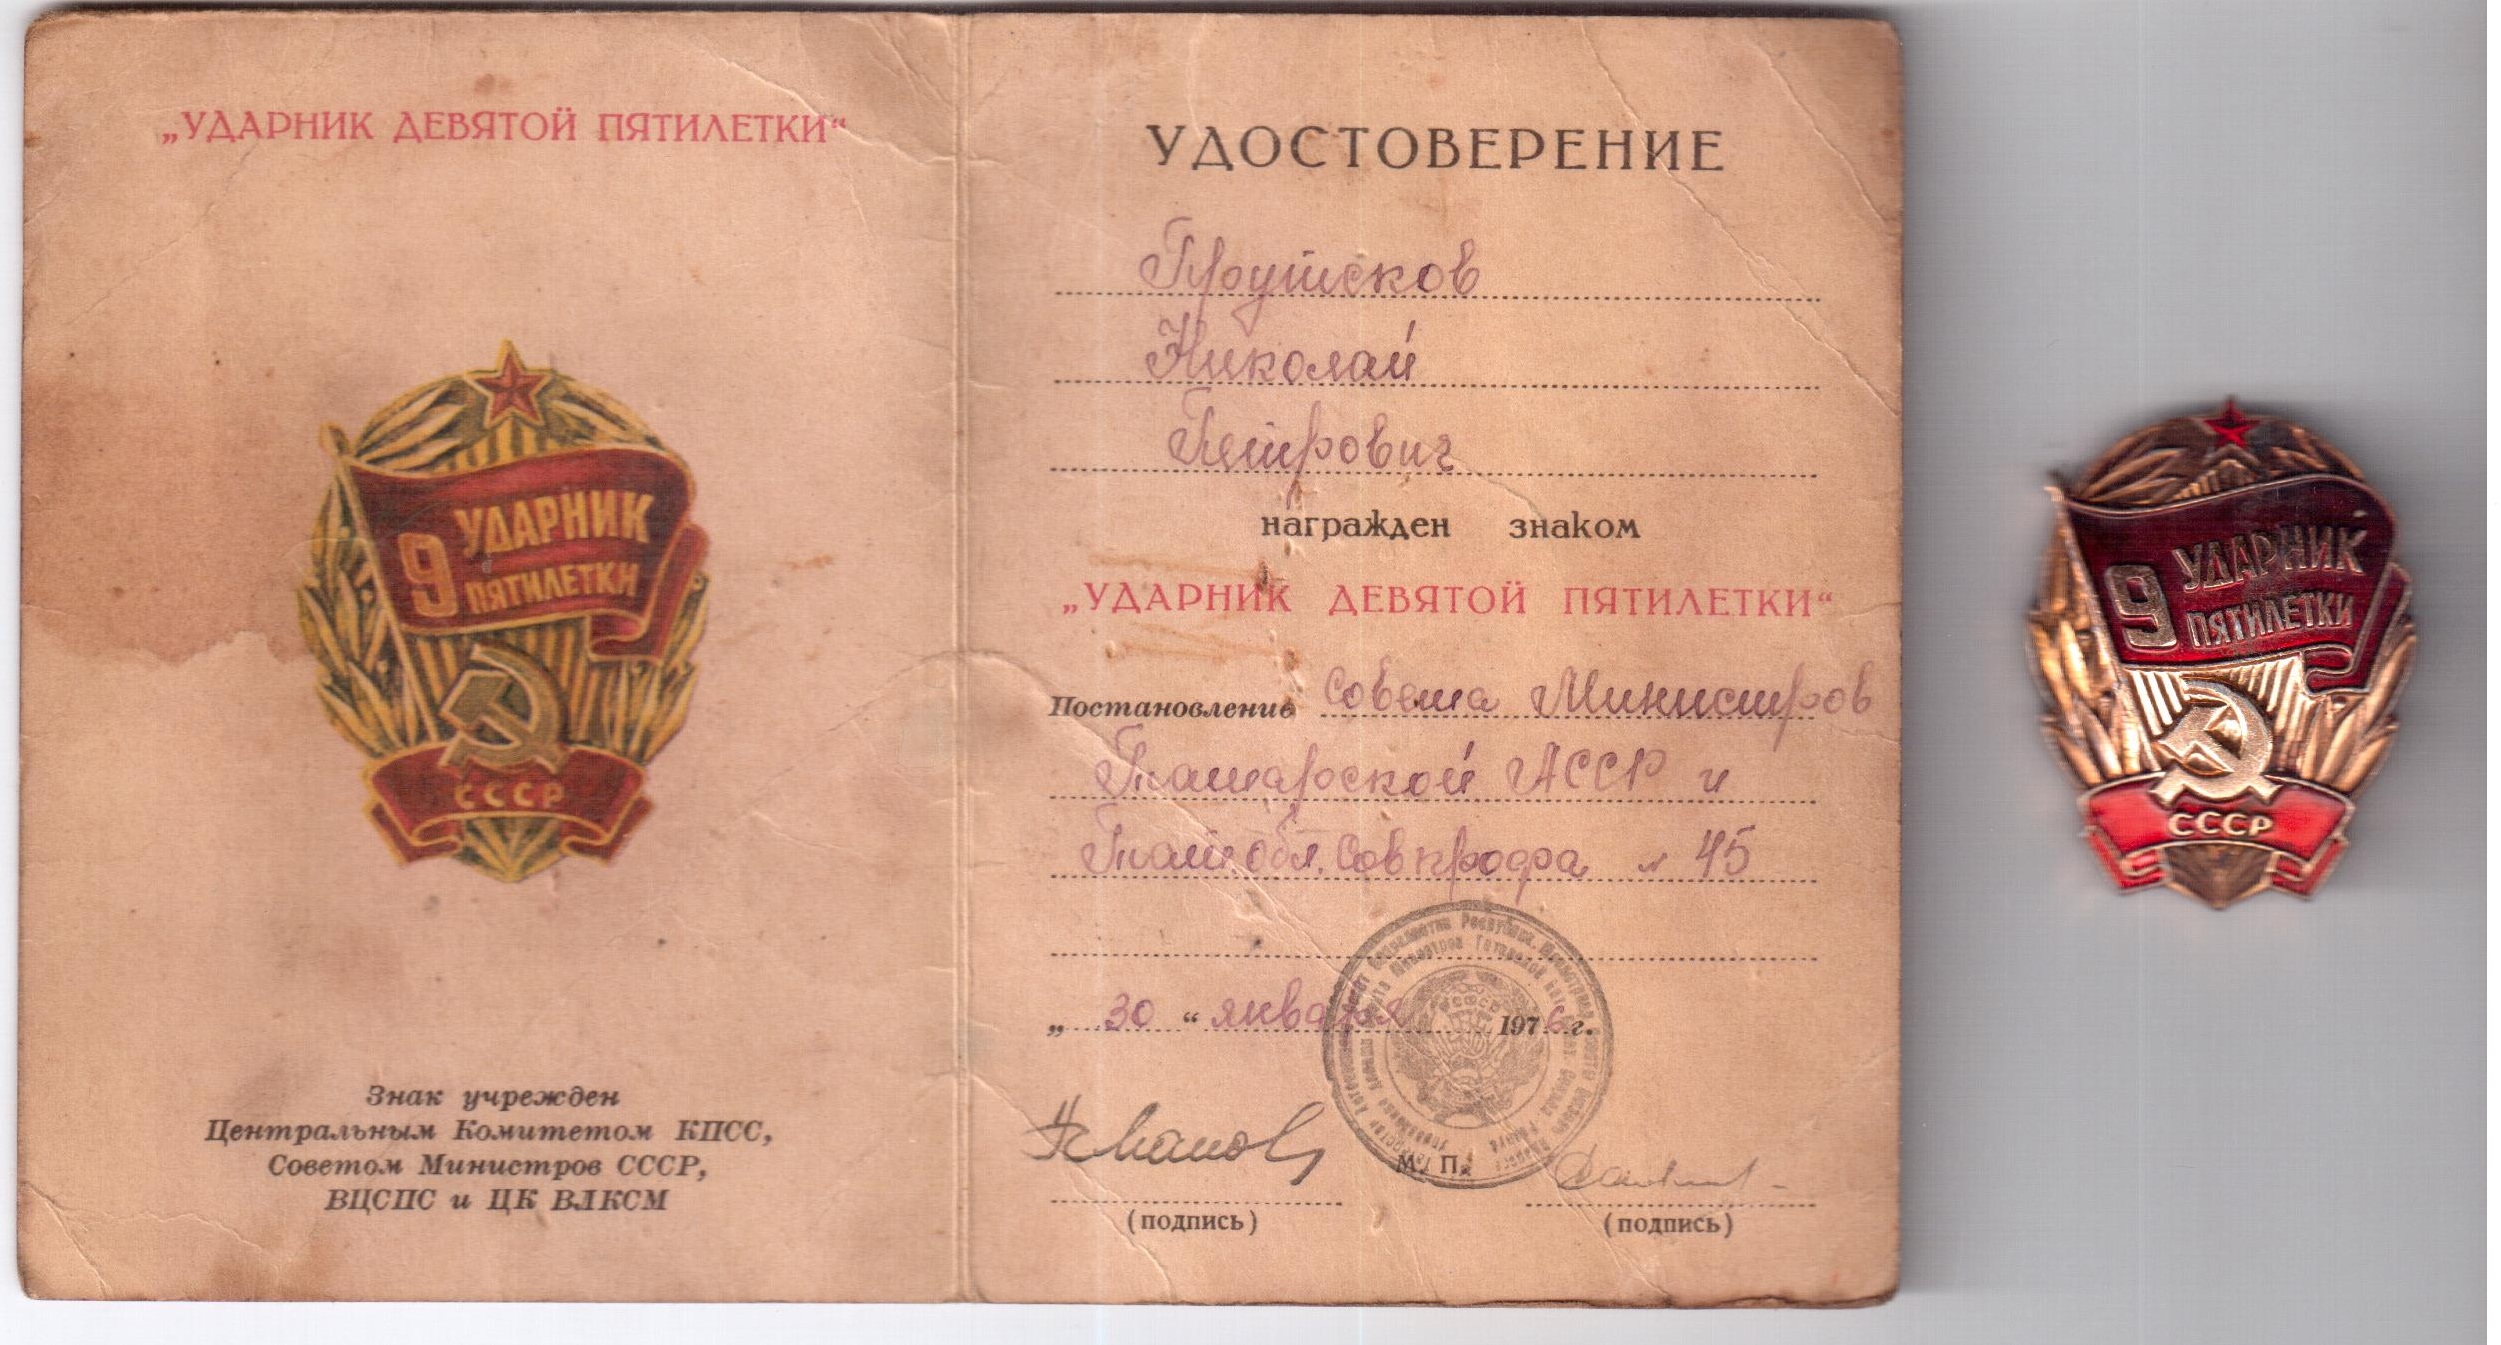 „УДАРНИК ДЕВЯТОЙ ПЯТИЛЕТКИ“
9 УДАРНИК
ПЯТИЛЕТКИ
СССР
Знак учрежден
Центральным Комитетом КПСС,
Советом Министров СССР,
ВЦСПС и ЦК ВЛКСМ
УДОСТОВЕРЕНИЕ
Прутсков
Николай
Петрович
награжден знаком
„УДАРНИК ДЕВЯТОЙ ПЯТИЛЕТКИ“
Постановление Совета Министров
Татарской АССР и
Тат. обл. Совпрофа № 45
„30“ января 1976 г.
М. П.
(подпись) (подпись)
9 УДАРНИК
ПЯТИЛЕТКИ
СССР